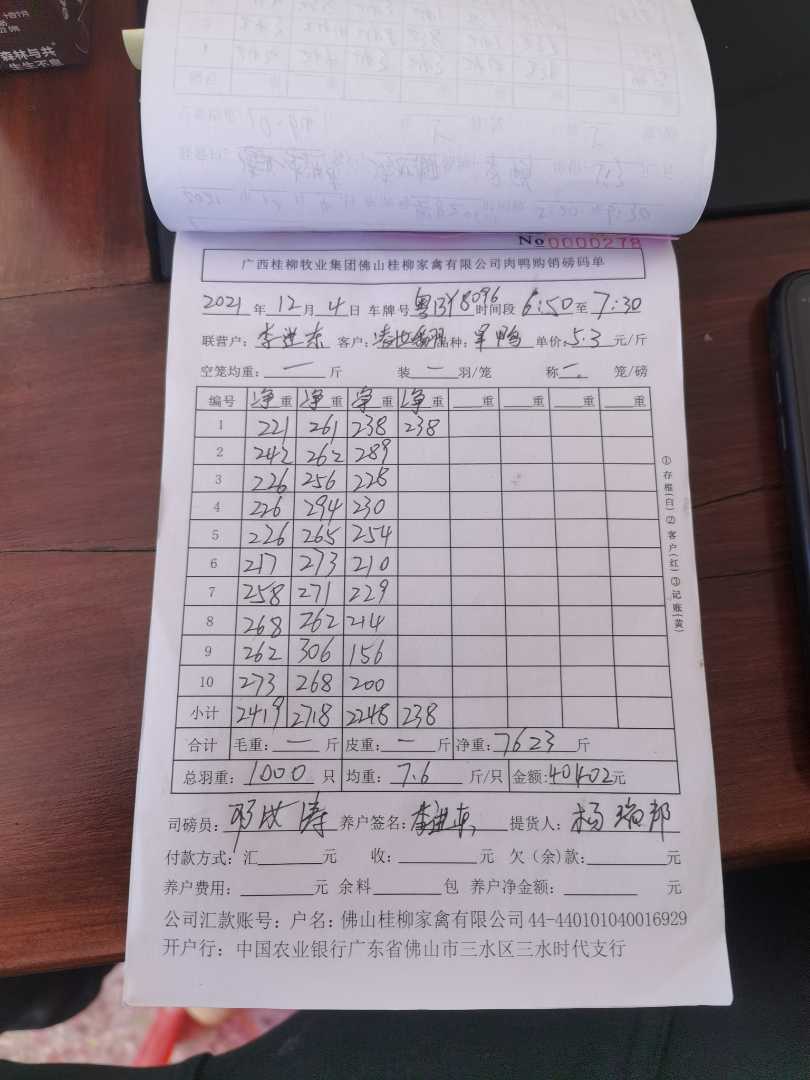 森林与共
生生不息
No0000278
广西桂柳牧业集团佛山桂柳家禽有限公司肉鸭购销磅码单
2021年12月4日 车牌号 粤BY8096 时间段 6:50至7:30
联营户：李进东 客户： 品种： 鸭 单价：5.3元/斤
空笼均重：一斤 装一羽/笼 称一笼/磅
编号 净重 净重 净重 净重 重 重 重 重
1 221 261 238 238
2 242 262 289
3 226 256 228
4 226 294 230
5 226 265 254
6 217 273 210
7 258 271 229
8 268 262 214
9 262 306 156
10 273 268 200
小计 2419 2718 2248 238
合计 毛重：一斤 皮重：一斤 净重：7623斤
总羽重：1000只 均重：7.6斤/只 金额：40402元
司磅员：邓 涛 养户签名：李进东 提货人：杨瑞邦
付款方式：汇 元 收： 元 欠（余）款： 元
养户费用： 元 余料 包 养户净金额： 元
公司汇款账号：户名：佛山桂柳家禽有限公司 44-440101040016929
开户行：中国农业银行广东省佛山市三水区三水时代支行
①存根(白)②客户(红)③记账(黄)